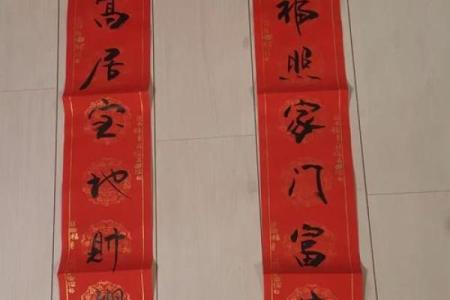 高居宝地财
福照家门富